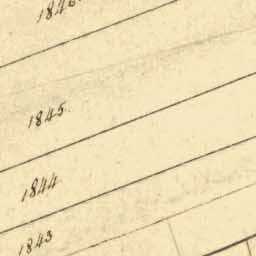 1846.
1845.
1844
1843